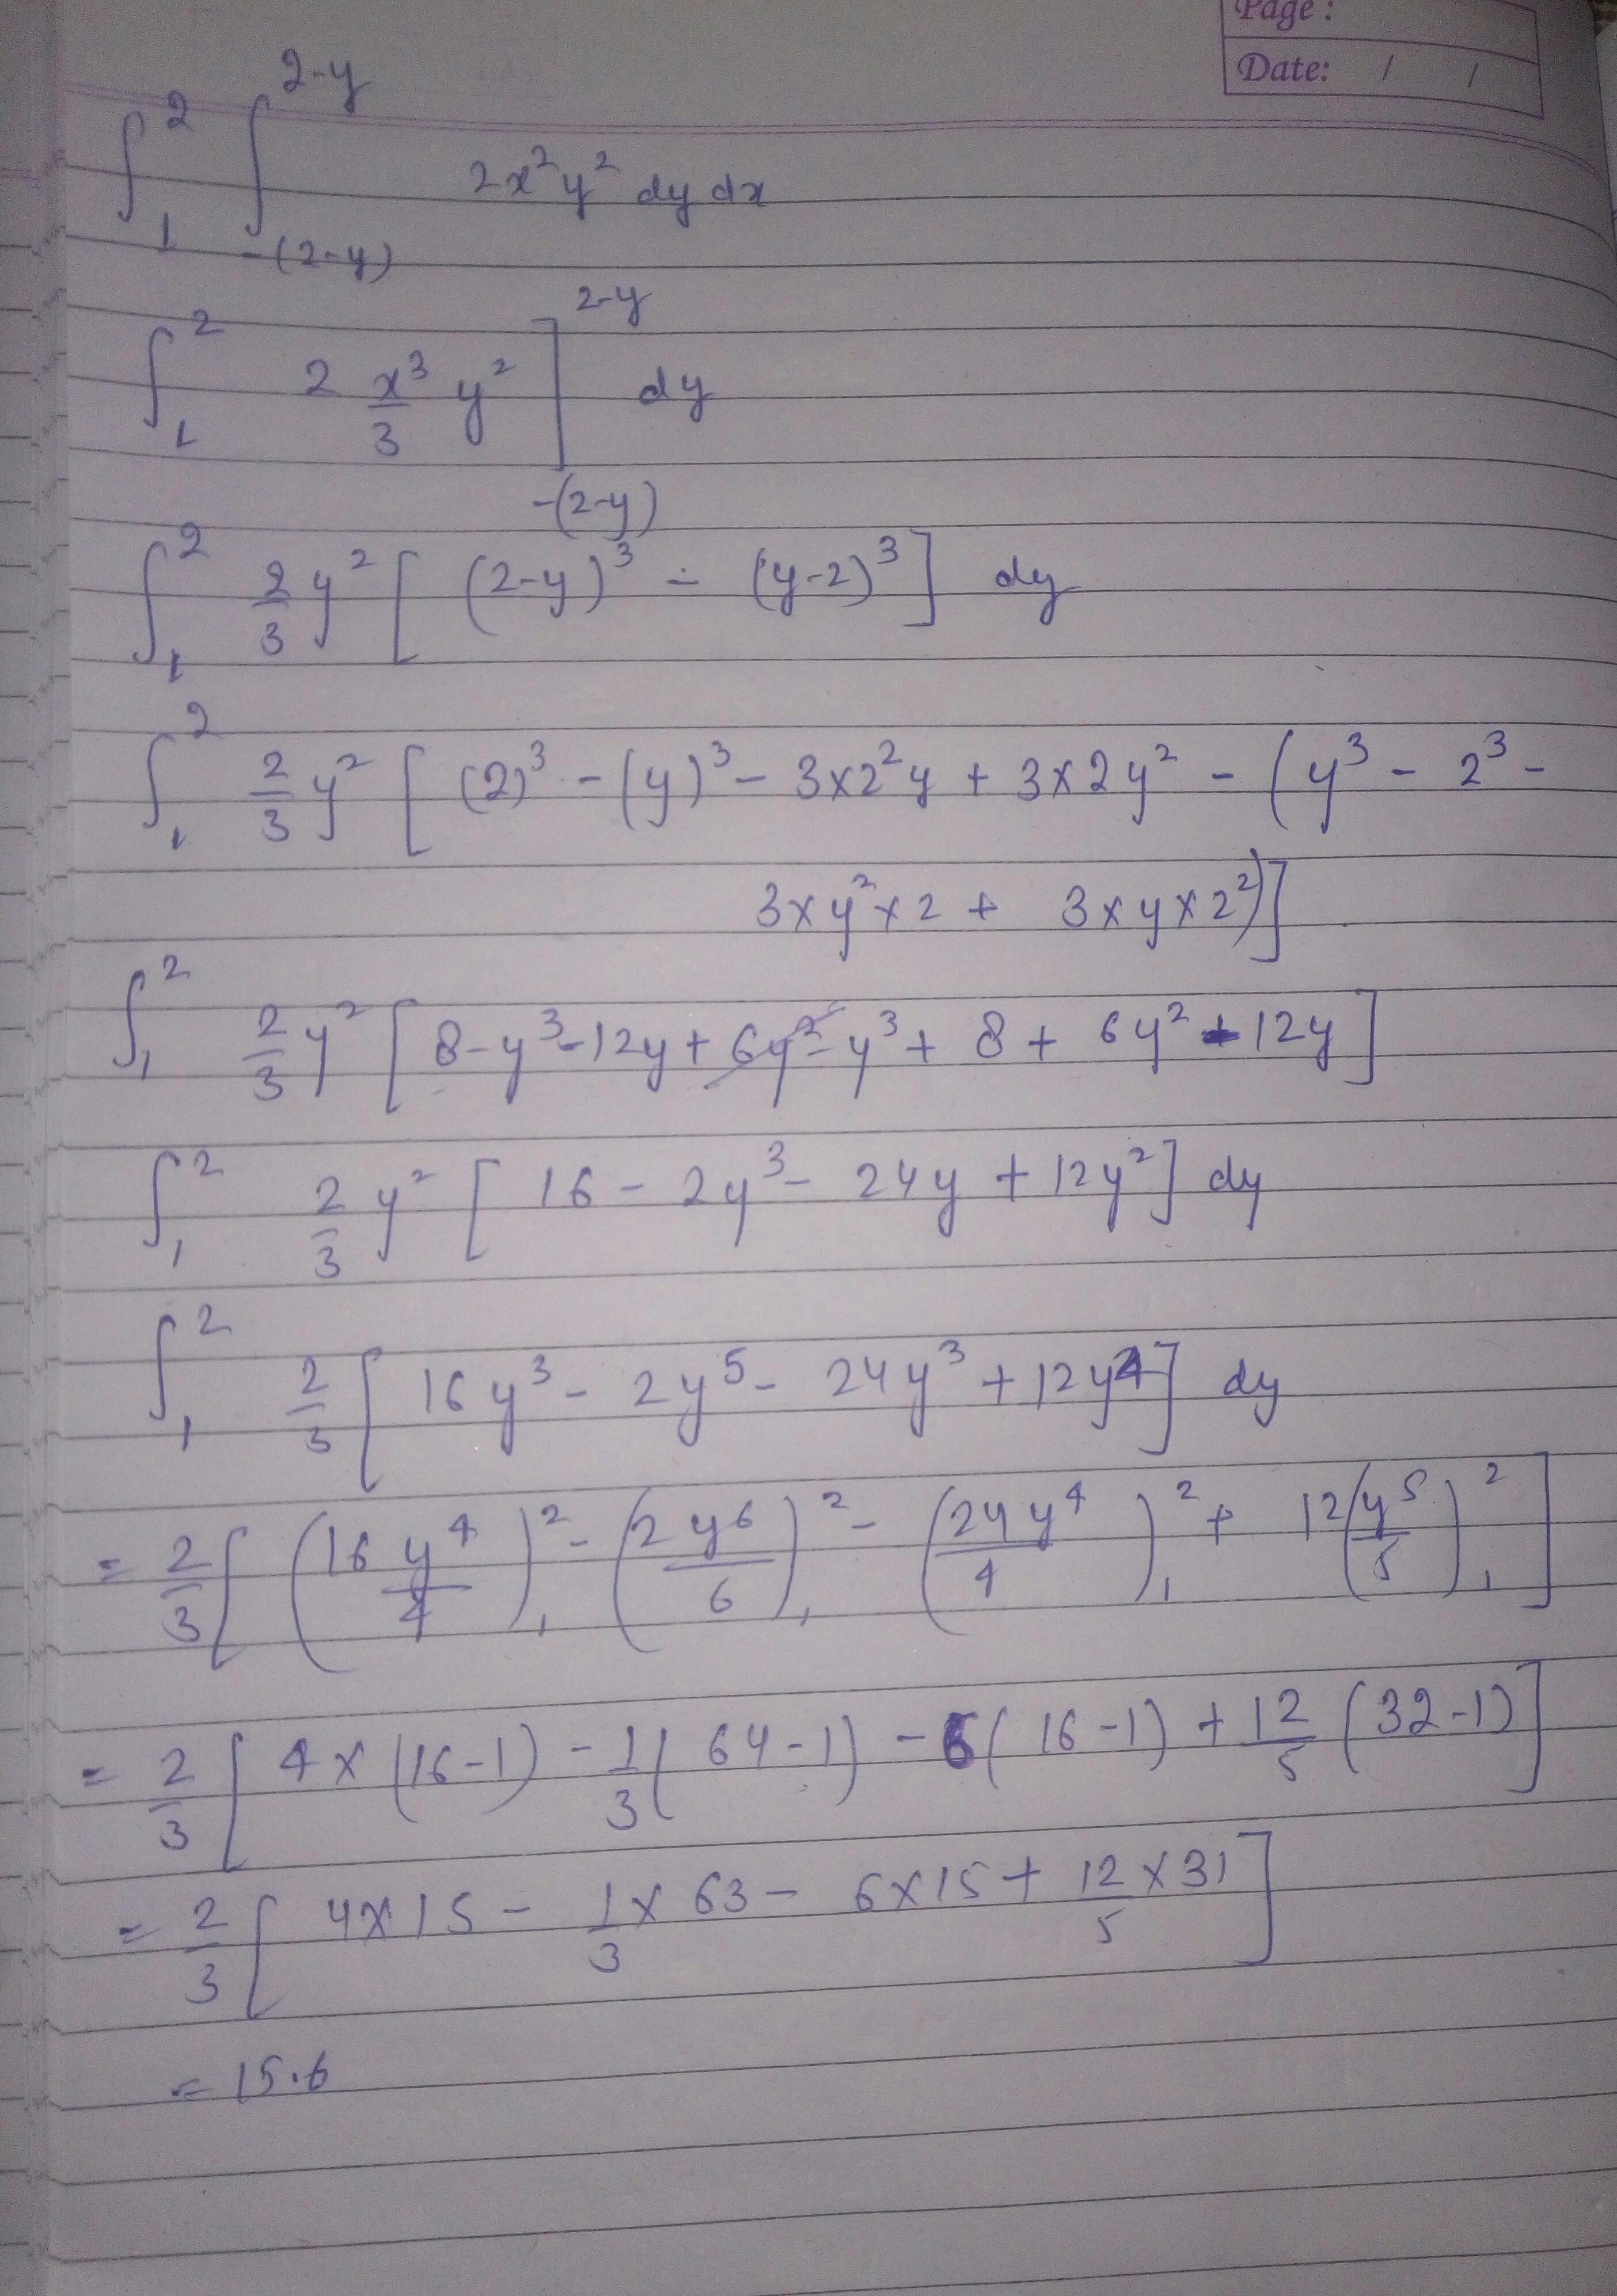 Page :
Date: / /
∫₁² ∫_{-(2-y)}^{2-y} 2x²y² dy dx
∫₁² 2 x³/3 y² ]_{-(2-y)}^{2-y} dy
∫₁² 2/3 y² [ (2-y)³ - (y-2)³ ] dy
∫₁² 2/3 y² [ (2)³ - (y)³ - 3×2²y + 3×2y² - ( y³ - 2³ -
3×y²×2 + 3×y×2²) ]
∫₁² 2/3 y² [ 8 - y³ - 12y + 6y² - y³ + 8 + 6y² - 12y ]
∫₁² 2/3 y² [ 16 - 2y³ - 24y + 12y² ] dy
∫₁² 2/3 [ 16y³ - 2y⁵ - 24y³ + 12y⁴ ] dy
= 2/3 [ (16 y⁴/4)₁² - (2y⁶/6)₁² - (24y⁴/4)₁² + 12(y⁵/5)₁² ]
= 2/3 [ 4×(16-1) - 1/3(64-1) - 6(16-1) + 12/5 (32-1) ]
= 2/3 [ 4×15 - 1/3×63 - 6×15 + 12/5×31 ]
= 15.6